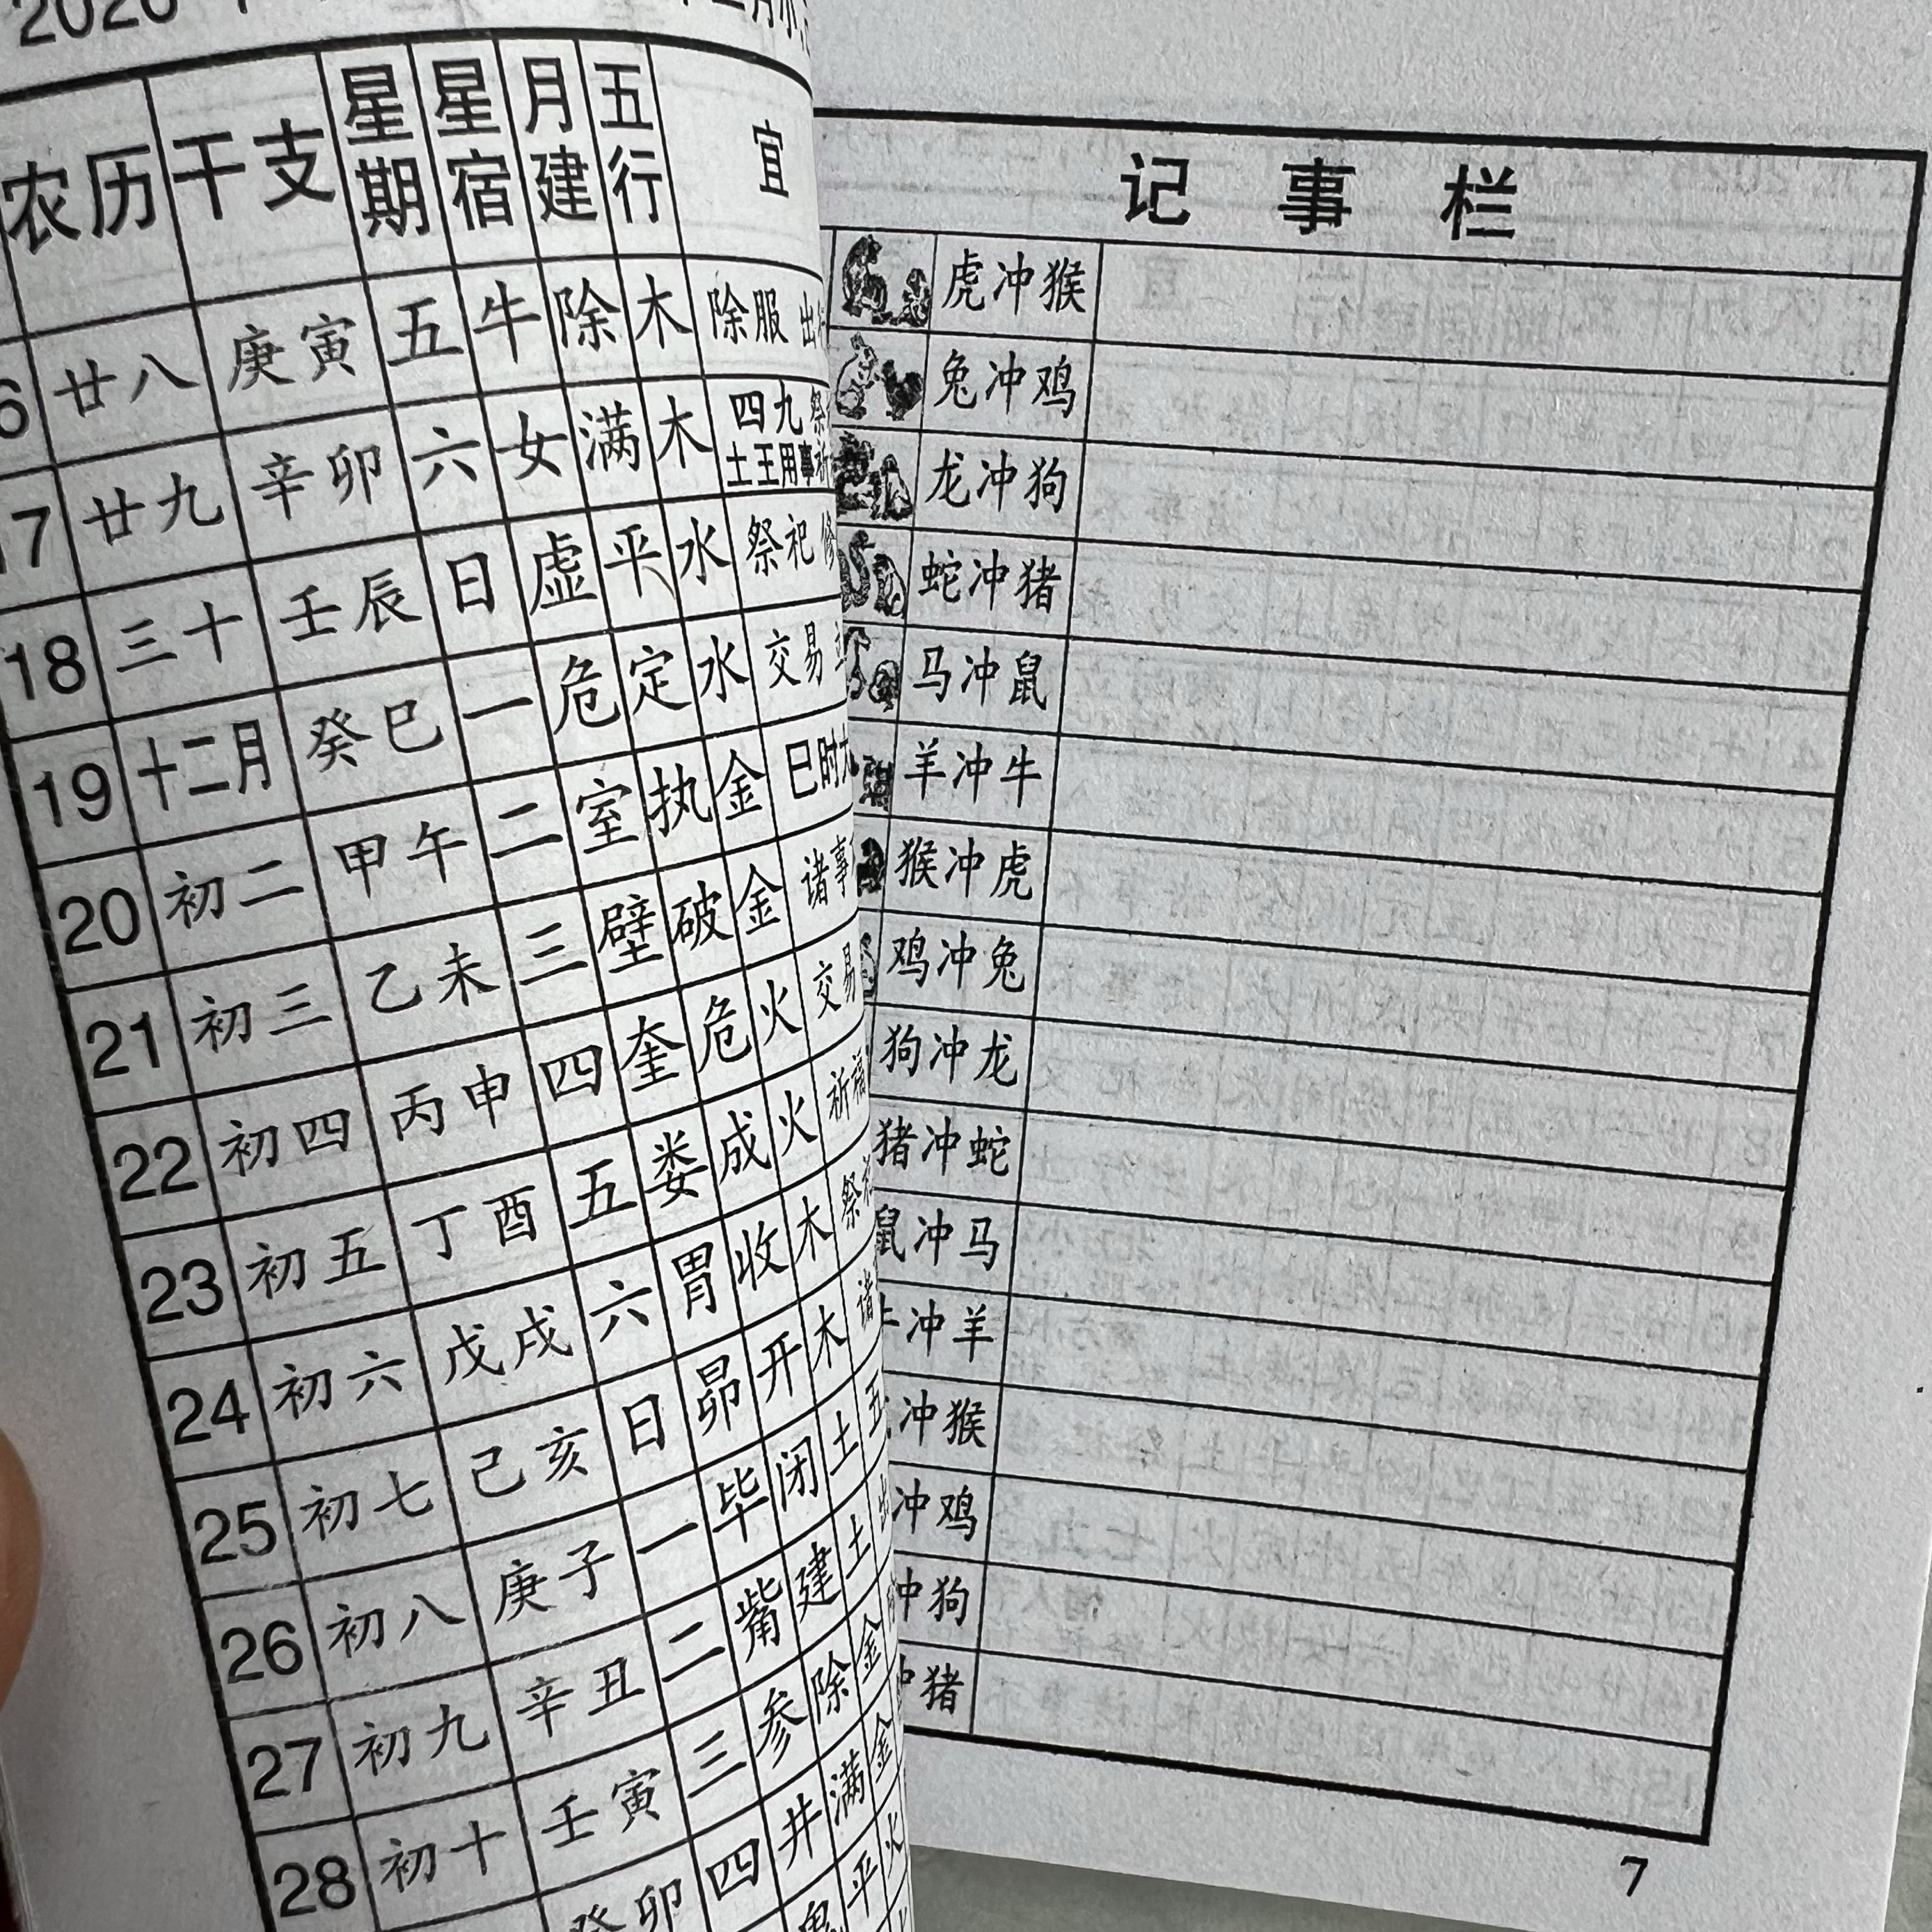 农历 干支 星期 星宿 月建 五行 宜
廿八 庚寅 五 牛 除 木 除服
17 廿九 辛卯 六 女 满 木 四九
土王用事
18 三十 壬辰 日 虚 平 水 祭祀
19 十二月 癸巳 一 危 定 水 交易
20 初二 甲午 二 室 执 金 巳时
21 初三 乙未 三 壁 破 金 诸事
22 初四 丙申 四 奎 危 火 交易
23 初五 丁酉 五 娄 成 火 祈福
24 初六 戊戌 六 胃 收 木
25 初七 己亥 日 昴 开 木
26 初八 庚子 一 毕 闭 土
27 初九 辛丑 二 觜 建 土
28 初十 壬寅 三 参 除 金
癸卯 四 井 满 金
平 火
记事栏
虎冲猴
兔冲鸡
龙冲狗
蛇冲猪
马冲鼠
羊冲牛
猴冲虎
鸡冲兔
狗冲龙
猪冲蛇
鼠冲马
冲羊
冲猴
冲鸡
冲狗
猪
7